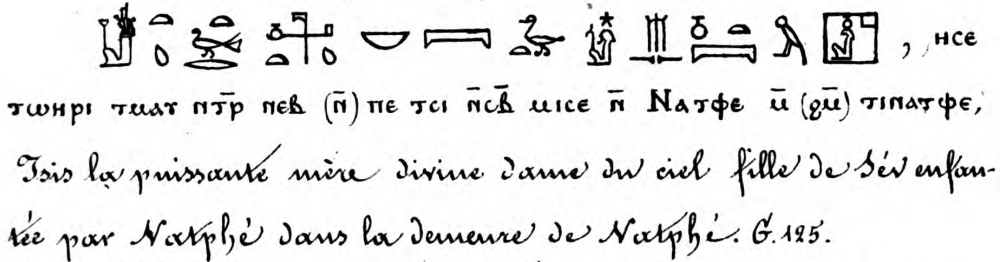 , ⲏⲥⲉ
ⲧⲱⲏⲣⲓ ⲧⲙⲁⲩ ⲛⲧ̄ⲣ ⲛⲉⲃ (ⲛ̄) ⲡⲉ ⲧⲥⲓ ⲛ̄ⲥⲃ̄ ⲙⲓⲥⲉ ⲛ̄ Ⲛⲁⲧⲫⲉ ⲙ̄ (ϩⲙ̄) ⲧⲓⲛⲁⲧⲫⲉ,
Isis la puissante mère divine dame du ciel fille de Sév enfan-
tée par Natphé dans la demeure de Natphé. G. 125.